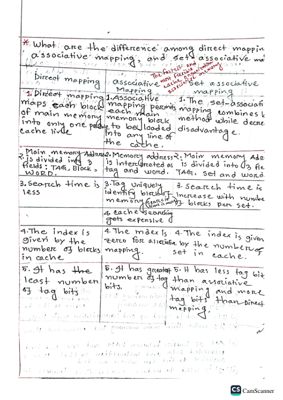 * What are the difference among direct mappin
associative mapping, and set associative ma
The fastest and
most flexible
associative
Direct mapping
associative
Mapping
Set associative
mapping
1. Direct mapping
maps each block
of main memory
into only one
cache line.
1. Associative
mapping permits
each main
memory block
to be loaded
into any line of
the cache.
1. The set-associati
mapping combines b
method while decre
disadvantage.
2. Main memory Address
is divided into 3
fields: TAG, Block &
WORD.
2. Memory address
is interpreted as
a tag and
word.
2. Main memory Add
is divided into 3 fi
TAG, Set and word
3. Search time is
less
3. Tag uniquely
identify block of
memory
& cache searching
gets expensive
3. Search time is
increase with number
of blocks per set.
4. The index is
given by the
number of blocks
in cache
4. The index is
zero for associative
mapping.
4. The index is given
by the number of
set in cache.
5. It has the
least number
of tag bits
5. It has greatest
number of tag
bits
5. It has less tag bit
than associative
mapping and more
tag bits than Direct
mapping.
CS CamScanner